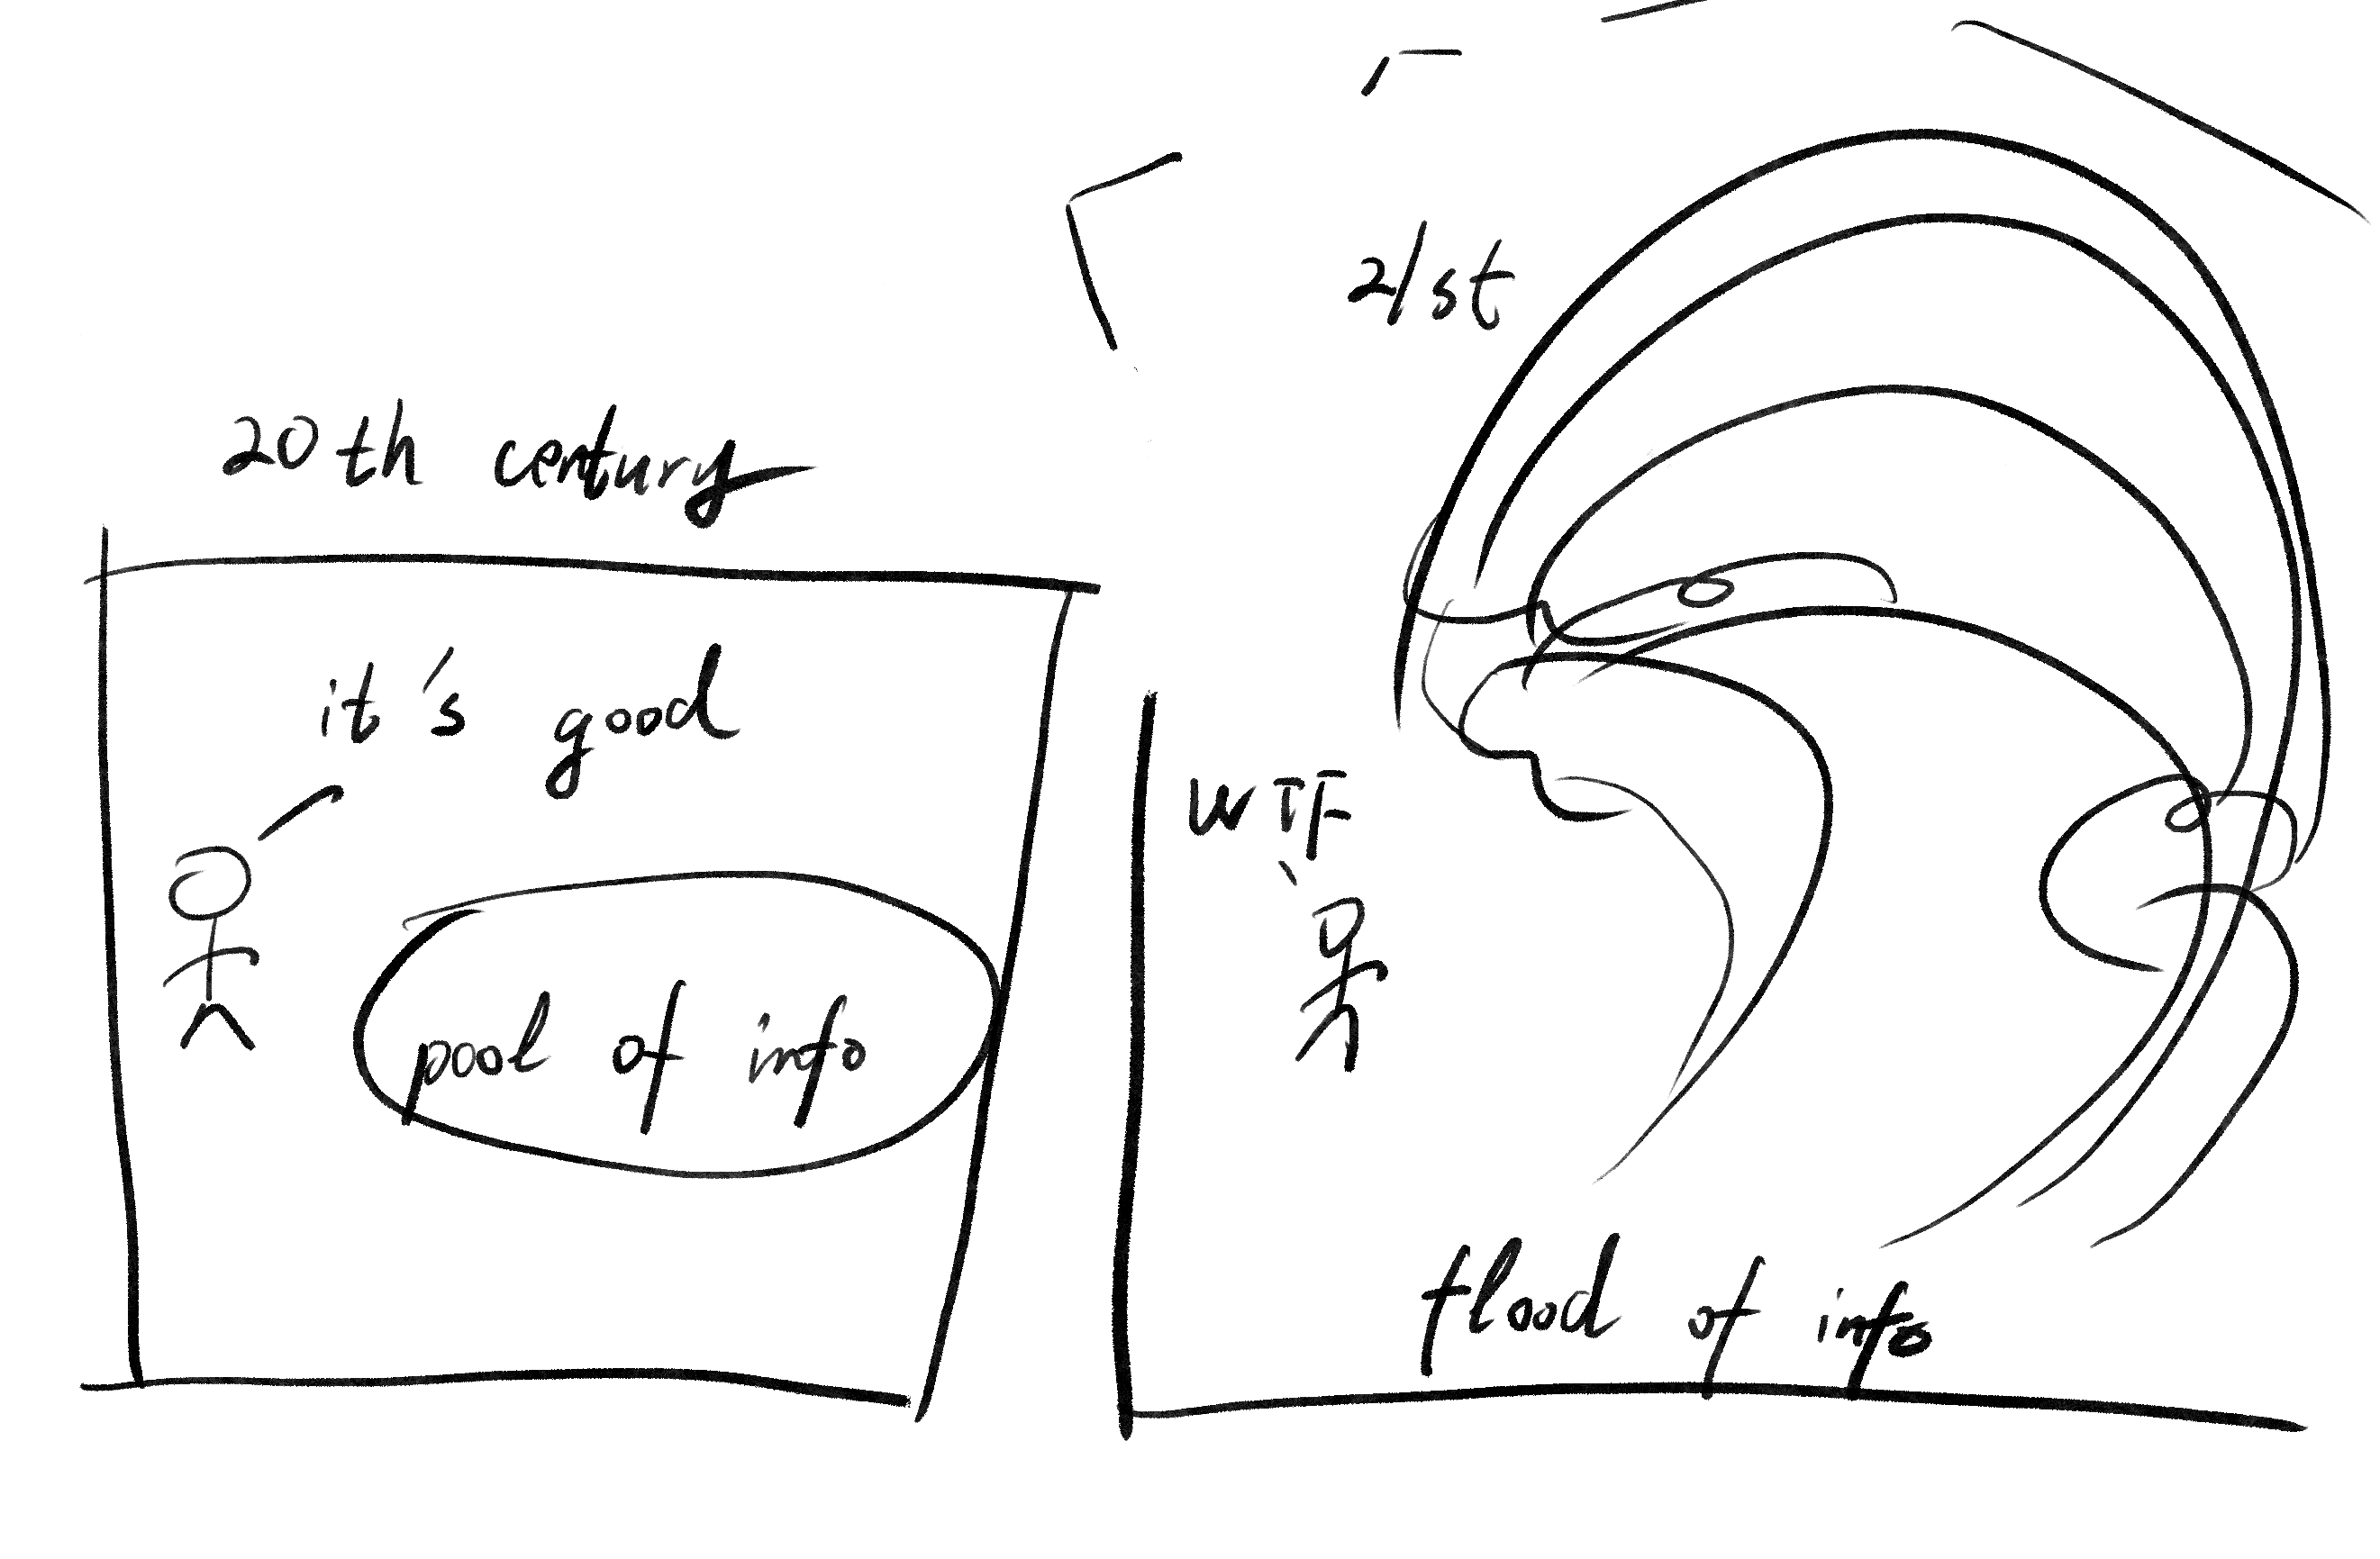 20th century
it's good
pool of info
21st
WTF
flood of info